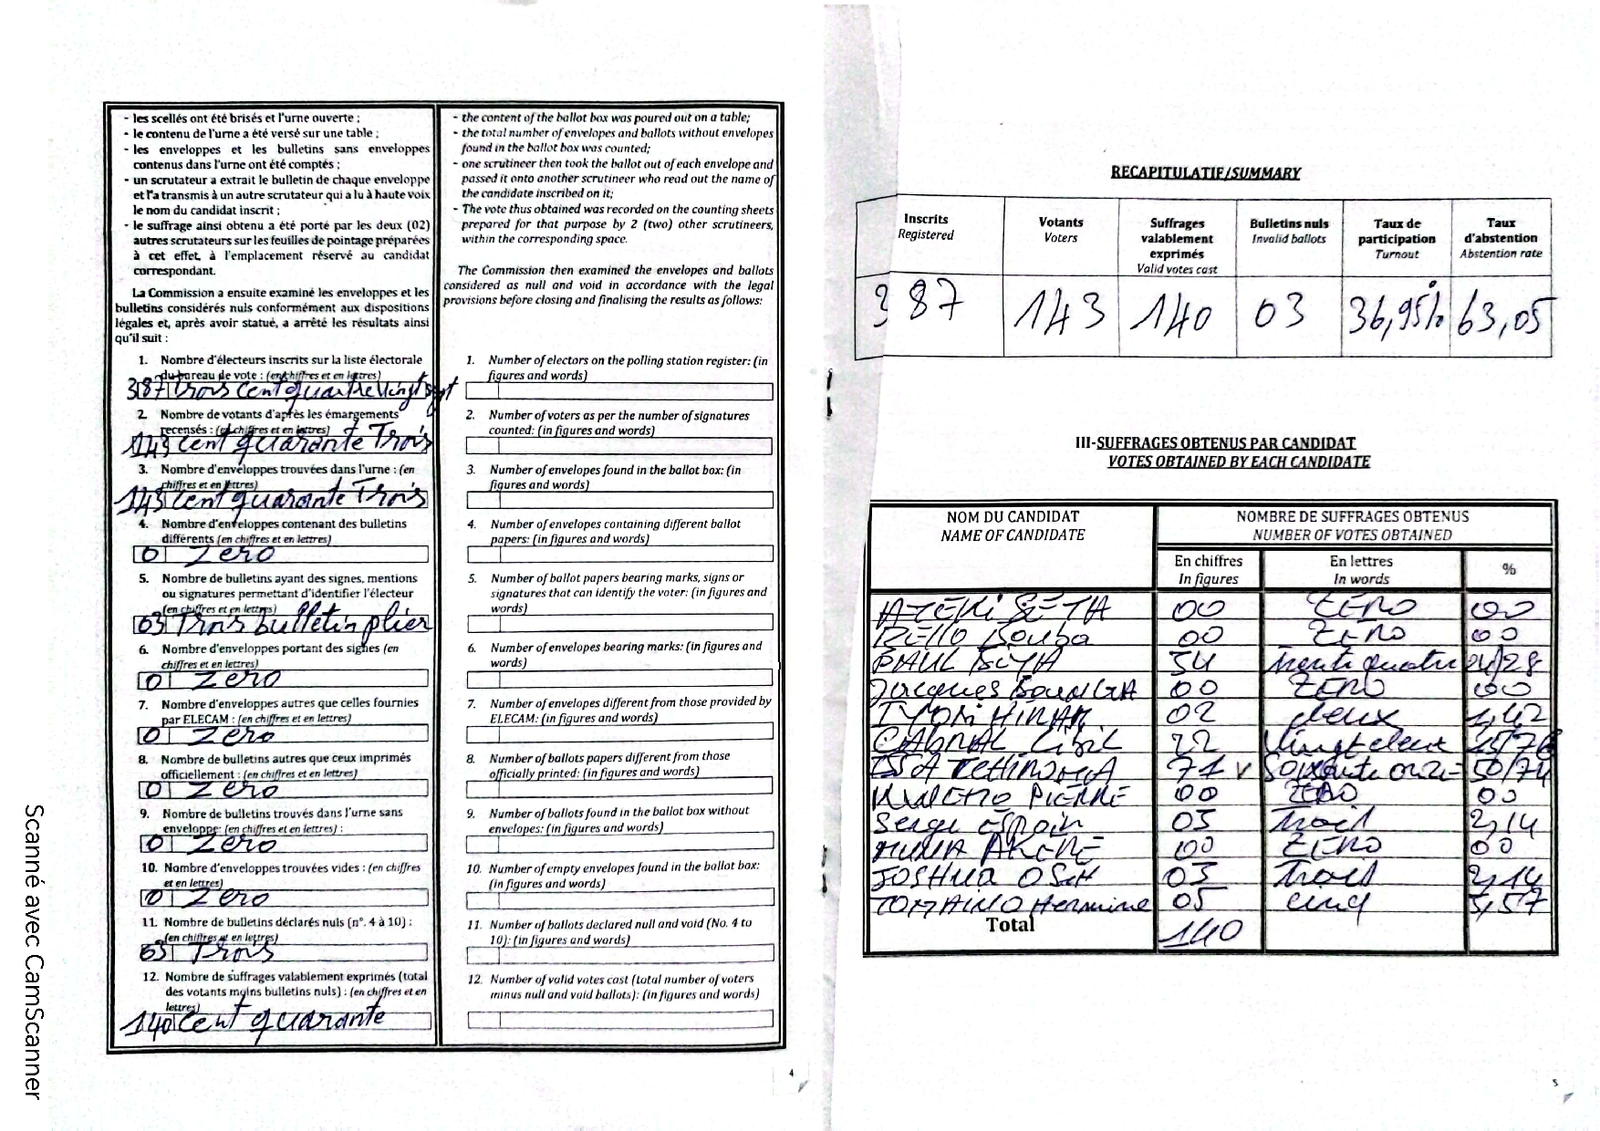 - les scellés ont été brisés et l'urne ouverte ;
- le contenu de l'urne a été versé sur une table ;
- les enveloppes et les bulletins sans enveloppes
contenus dans l'urne ont été comptés ;
- un scrutateur a extrait le bulletin de chaque enveloppe
et l'a transmis à un autre scrutateur qui a lu à haute voix
le nom du candidat inscrit ;
- le suffrage ainsi obtenu a été porté par les deux (02)
autres scrutateurs sur les feuilles de pointage préparées
à cet effet, à l'emplacement réservé au candidat
correspondant.
La Commission a ensuite examiné les enveloppes et les
bulletins considérés nuls conformément aux dispositions
légales et, après avoir statué, a arrêté les résultats ainsi
qu'il suit :
1. Nombre d'électeurs inscrits sur la liste électorale
du bureau de vote : (en chiffres et en lettres)
387 trois cent quatre vingt sept
2. Nombre de votants d'après les émargements
recensés : (en chiffres et en lettres)
143 cent quarante Trois
3. Nombre d'enveloppes trouvées dans l'urne : (en
chiffres et en lettres)
143 cent quarante Trois
4. Nombre d'enveloppes contenant des bulletins
différents (en chiffres et en lettres)
0 Zero
5. Nombre de bulletins ayant des signes, mentions
ou signatures permettant d'identifier l'électeur
(en chiffres et en lettres)
03 Trois bulletin plier
6. Nombre d'enveloppes portant des signes (en
chiffres et en lettres)
0 Zero
7. Nombre d'enveloppes autres que celles fournies
par ELECAM : (en chiffres et en lettres)
0 Zero
8. Nombre de bulletins autres que ceux imprimés
officiellement : (en chiffres et en lettres)
0 Zero
9. Nombre de bulletins trouvés dans l'urne sans
enveloppe: (en chiffres et en lettres) :
0 Zero
10. Nombre d'enveloppes trouvées vides : (en chiffres
et en lettres)
0 Zero
11. Nombre de bulletins déclarés nuls (n°. 4 à 10) :
(en chiffres et en lettres)
03 Trois
12. Nombre de suffrages valablement exprimés (total
des votants moins bulletins nuls) : (en chiffres et en
lettres)
140 cent quarante
- the content of the ballot box was poured out on a table;
- the total number of envelopes and ballots without envelopes
found in the ballot box was counted;
- one scrutineer then took the ballot out of each envelope and
passed it onto another scrutineer who read out the name of
the candidate inscribed on it;
- The vote thus obtained was recorded on the counting sheets
prepared for that purpose by 2 (two) other scrutineers,
within the corresponding space.
The Commission then examined the envelopes and ballots
considered as null and void in accordance with the legal
provisions before closing and finalising the results as follows:
1. Number of electors on the polling station register: (in
figures and words)
2. Number of voters as per the number of signatures
counted: (in figures and words)
3. Number of envelopes found in the ballot box: (in
figures and words)
4. Number of envelopes containing different ballot
papers: (in figures and words)
5. Number of ballot papers bearing marks, signs or
signatures that can identify the voter: (in figures and
words)
6. Number of envelopes bearing marks: (in figures and
words)
7. Number of envelopes different from those provided by
ELECAM: (in figures and words)
8. Number of ballots papers different from those
officially printed: (in figures and words)
9. Number of ballots found in the ballot box without
envelopes: (in figures and words)
10. Number of empty envelopes found in the ballot box:
(in figures and words)
11. Number of ballots declared null and void (No. 4 to
10): (in figures and words)
12. Number of valid votes cast (total number of voters
minus null and void ballots): (in figures and words)
4
RECAPITULATIF/SUMMARY
Inscrits Registered | Votants Voters | Suffrages valablement exprimés Valid votes cast | Bulletins nuls Invalid ballots | Taux de participation Turnout | Taux d'abstention Abstention rate
387 | 143 | 140 | 03 | 36,95% | 63,05
III-SUFFRAGES OBTENUS PAR CANDIDAT
VOTES OBTAINED BY EACH CANDIDATE
NOM DU CANDIDAT NAME OF CANDIDATE | NOMBRE DE SUFFRAGES OBTENUS NUMBER OF VOTES OBTAINED
En chiffres In figures | En lettres In words | %
ATEKI SETA 00 ZERO 00
BELLO Bouba 00 ZERO 00
PAUL BIYA 34 trente quatre 24/28
Jacques BouGHA 00 ZERO 00
TYOM HIRAM 02 deux 1,42
CABRAL Libii 22 Vingt deux 15/76
ISSA TCHIROMA 71 Soixante onze 50/74
KWEMO PIERRE 00 ZERO 00
Serge Espoir 03 Trois 2,14
MUNA AKERE 00 ZERO 00
JOSHUA OSIH 03 Trois 2,14
TOMAINO Hermine 05 cinq 3,57
Total 140
5
Scanné avec CamScanner